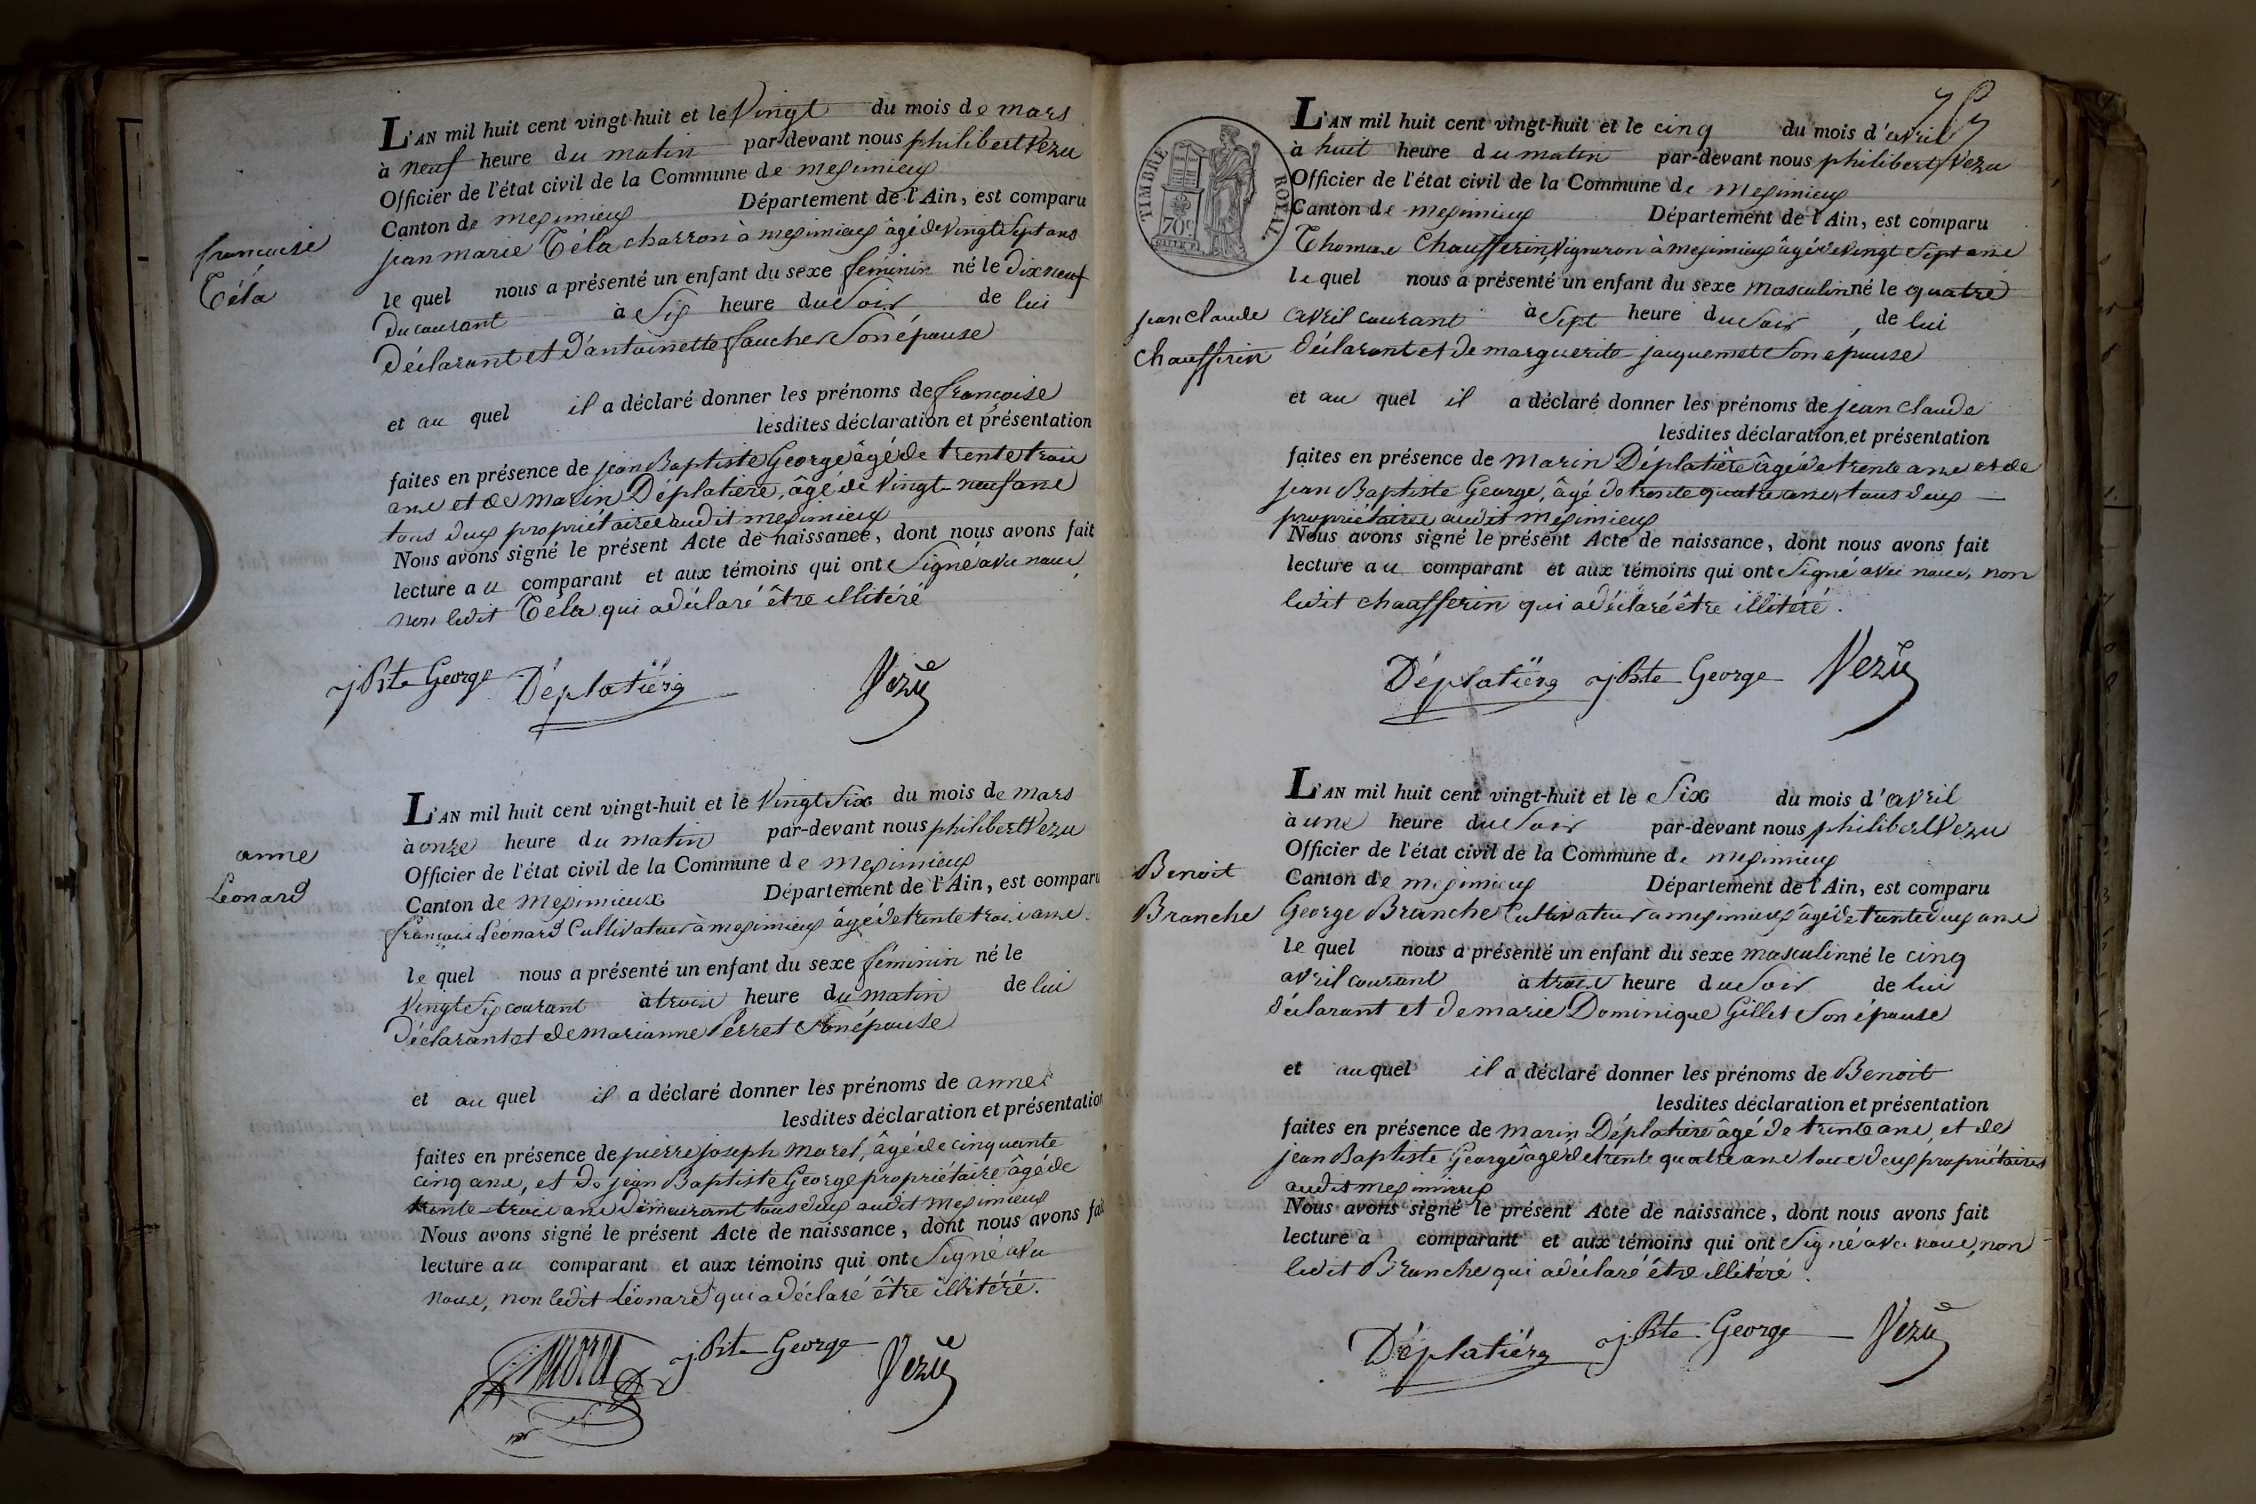 L'AN mil huit cent vingt-huit et le Vingt du mois de mars
à neuf heure du matin par-devant nous philibert Vezu
Officier de l'état civil de la Commune de meximieux
Canton de meximieux Département de l'Ain, est comparu
jean marie Téla charron à meximieux âgé de vingt Sept ans
le quel nous a présenté un enfant du sexe féminin né le dix neuf
du courant à Six heure du Soir de lui
Déclarant et d'antoinette faucher Son épouse
et au quel il a déclaré donner les prénoms de françoise
lesdites déclaration et présentation
faites en présence de jean Baptiste George âgé de trente trois
ans et de marin Déplatiere, âgé de vingt-neuf ans
tous deux propriétaires audit meximieux
Nous avons signé le présent Acte de naissance, dont nous avons fait
lecture au comparant et aux témoins qui ont Signé avec nous,
non ledit Téla qui a déclaré être illitéré
françoise
Téla
jBte George Déplatière Vezu
L'AN mil huit cent vingt-huit et le Vingt Six du mois de mars
à onze heure du matin par-devant nous philibert Vezu
Officier de l'état civil de la Commune de meximieux
Canton de meximieux Département de l'Ain, est comparu
françois Léonard Cultivateur à meximieux âgé de trente trois ans
le quel nous a présenté un enfant du sexe féminin né le
Vingt Six courant à trois heure du matin de lui
Déclarant et de marianne Perret Son épouse
et au quel il a déclaré donner les prénoms de anne
lesdites déclaration et présentation
faites en présence de pierre joseph morel, âgé de cinquante
cinq ans, et de jean Baptiste George propriétaire âgé de
trente-trois ans demeurant tous deux audit meximieux
Nous avons signé le présent Acte de naissance, dont nous avons fai
lecture au comparant et aux témoins qui ont Signé avec
nous, non ledit Léonard qui a déclaré être illitéré.
anne
Léonard
jBte George Vezu
TIMBRE ROYAL
L'AN mil huit cent vingt-huit et le cinq du mois d'avril
à huit heure du matin par-devant nous philibert Vezu
Officier de l'état civil de la Commune de meximieux
Canton de meximieux Département de l'Ain, est comparu
Thomas Chaufferin, Vigneron à meximieux âgé de vingt Sept ans
le quel nous a présenté un enfant du sexe masculin né le quatre
avril courant à Sept heure du Soir, de lui
déclarant et de marguerite jacquemet Son épouse
et au quel il a déclaré donner les prénoms de jean claude
lesdites déclaration et présentation
faites en présence de marin Déplatière âgé de trente ans et de
jean Baptiste George, âgé de trente quatre ans tous deux
propriétaires audit meximieux
Nous avons signé le présent Acte de naissance, dont nous avons fait
lecture au comparant et aux témoins qui ont Signé avec nous, non
ledit chaufferin qui a déclaré être illitéré.
jean claude
chaufferin
Déplatière jBte George Vezu
L'AN mil huit cent vingt-huit et le Six du mois d'avril
à une heure du Soir par-devant nous philibert Vezu
Officier de l'état civil de la Commune de meximieux
Canton de meximieux Département de l'Ain, est comparu
George Branche Cultivateur à meximieux âgé de trente deux ans
le quel nous a présenté un enfant du sexe masculin né le cinq
avril courant à trois heure du Soir de lui
déclarant et de marie Dominique Gillet Son épouse
et au quel il a déclaré donner les prénoms de Benoit
lesdites déclaration et présentation
faites en présence de marin Déplatiere âgé de trente ans, et de
jean Baptiste George âgé de trente quatre ans tous deux propriétaires
audit meximieux
Nous avons signé le présent Acte de naissance, dont nous avons fait
lecture a comparant et aux témoins qui ont Signé avec nous, non
ledit Branche qui a déclaré être illitéré.
Benoit
Branche
Déplatière jBte George Vezu